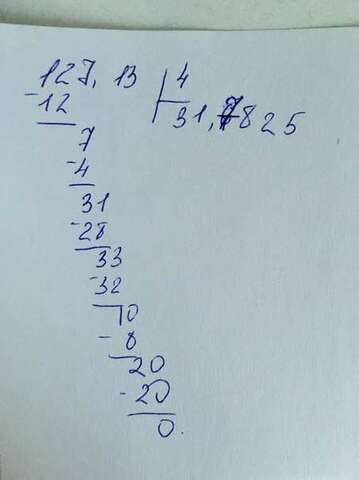 127,13 4
-12 31,7825
7
-4
31
-28
33
-32
10
-8
20
-20
0.